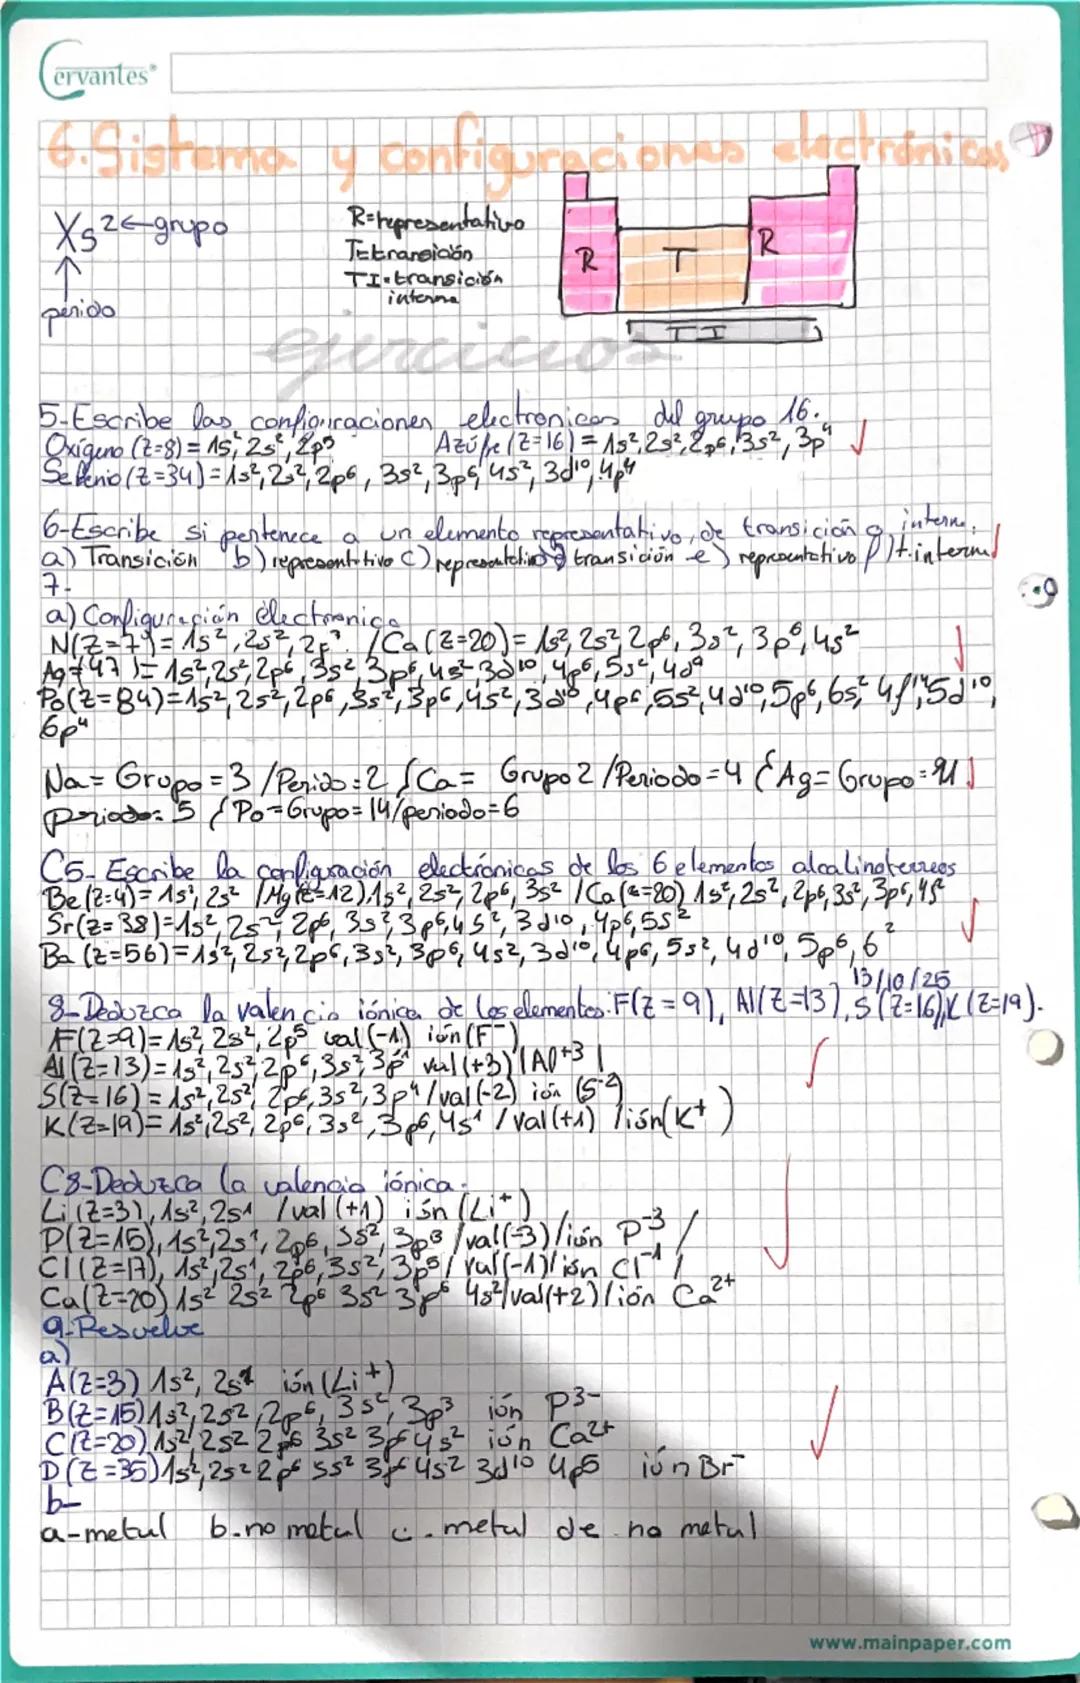 Cervantes®
6. Sistema y configuraciones electrónicas
Xs² ← grupo
pérido
R=representativo
T=transición
TI=transición
interna
R T R
TI
ejercicios
5-Escribe las configuraciones electronicas del grupo 16.
Oxígeno (Z=8) = 1s², 2s², 2p⁵ Azúfre (Z=16) = 1s², 2s², 2p⁶, 3s², 3p⁴
Selenio (Z=34) = 1s², 2s², 2p⁶, 3s², 3p⁶, 4s², 3d¹⁰, 4p⁴
6-Escribe si pertenece a un elemento representativo, de transición o interna.
a) Transición b) representativo c) representativo d) transición e) representativo f) t. interna
7-
a) Configuración electronica
N(Z=7) = 1s², 2s², 2p³. / Ca (Z=20) = 1s², 2s², 2p⁶, 3s², 3p⁶, 4s²
Ag (47) = 1s², 2s², 2p⁶, 3s², 3p⁶, 4s², 3d¹⁰, 4p⁶, 5s², 4d⁹
Po (Z=84) = 1s², 2s², 2p⁶, 3s², 3p⁶, 4s², 3d¹⁰, 4p⁶, 5s², 4d¹⁰, 5p⁶, 6s², 4f¹⁴, 5d¹⁰,
6p⁴
Na = Grupo = 3 / Perido = 2 { Ca = Grupo 2 / Periodo = 4 { Ag = Grupo = 11
periodo = 5 { Po = Grupo = 14 / periodo = 6
C5- Escribe la configuración electrónicas de los 6 elementos alcalinoterreos
Be (Z=4) = 1s², 2s² / Mg (Z=12), 1s², 2s², 2p⁶, 3s² / Ca (Z=20) 1s², 2s², 2p⁶, 3s², 3p⁶, 4s²
Sr (Z=38) = 1s², 2s², 2p⁶, 3s², 3p⁶, 4s², 3d¹⁰, 4p⁶, 5s²
Ba (Z=56) = 1s², 2s², 2p⁶, 3s², 3p⁶, 4s², 3d¹⁰, 4p⁶, 5s², 4d¹⁰, 5p⁶, 6²
13/10/25
8-Deduzca la valencia iónica de los elementos: F(Z=9), Al(Z=13), S(Z=16), K(Z=19).
F(Z=9) = 1s², 2s², 2p⁵ val(-1) ión (F⁻)
Al (Z=13) = 1s², 2s², 2p⁶, 3s², 3p¹ val(+3) (Al⁺³)
S(Z=16) = 1s², 2s², 2p⁶, 3s², 3p⁴ / val(-2) ión (S⁻²)
K(Z=19) = 1s², 2s², 2p⁶, 3s², 3p⁶, 4s¹ / val(+1) / ión(K⁺)
C8-Deduzca la valencia iónica.
Li (Z=3), 1s², 2s¹ / val (+1) ión (Li⁺)
P(Z=15), 1s², 2s², 2p⁶, 3s², 3p³ / val(-3) / ión P⁻³ /
Cl (Z=17), 1s², 2s², 2p⁶, 3s², 3p⁵ / val(-1) / ión Cl⁻¹ /
Ca(Z=20) 1s² 2s² 2p⁶ 3s² 3p⁶ 4s² / val(+2) / ión Ca²⁺
9-Resuelve
a)
A(Z=3) 1s², 2s¹ ión (Li⁺)
B(Z=15) 1s², 2s², 2p⁶, 3s², 3p³ ión P³⁻
C(Z=20) 1s² 2s² 2p⁶ 3s² 3p⁶ 4s² ión Ca²⁺
D(Z=35) 1s², 2s² 2p⁶ 3s² 3p⁶ 4s² 3d¹⁰ 4p⁵ ión Br⁻
b-
a-metal b. no metal c. metal d. no metal
www.mainpaper.com